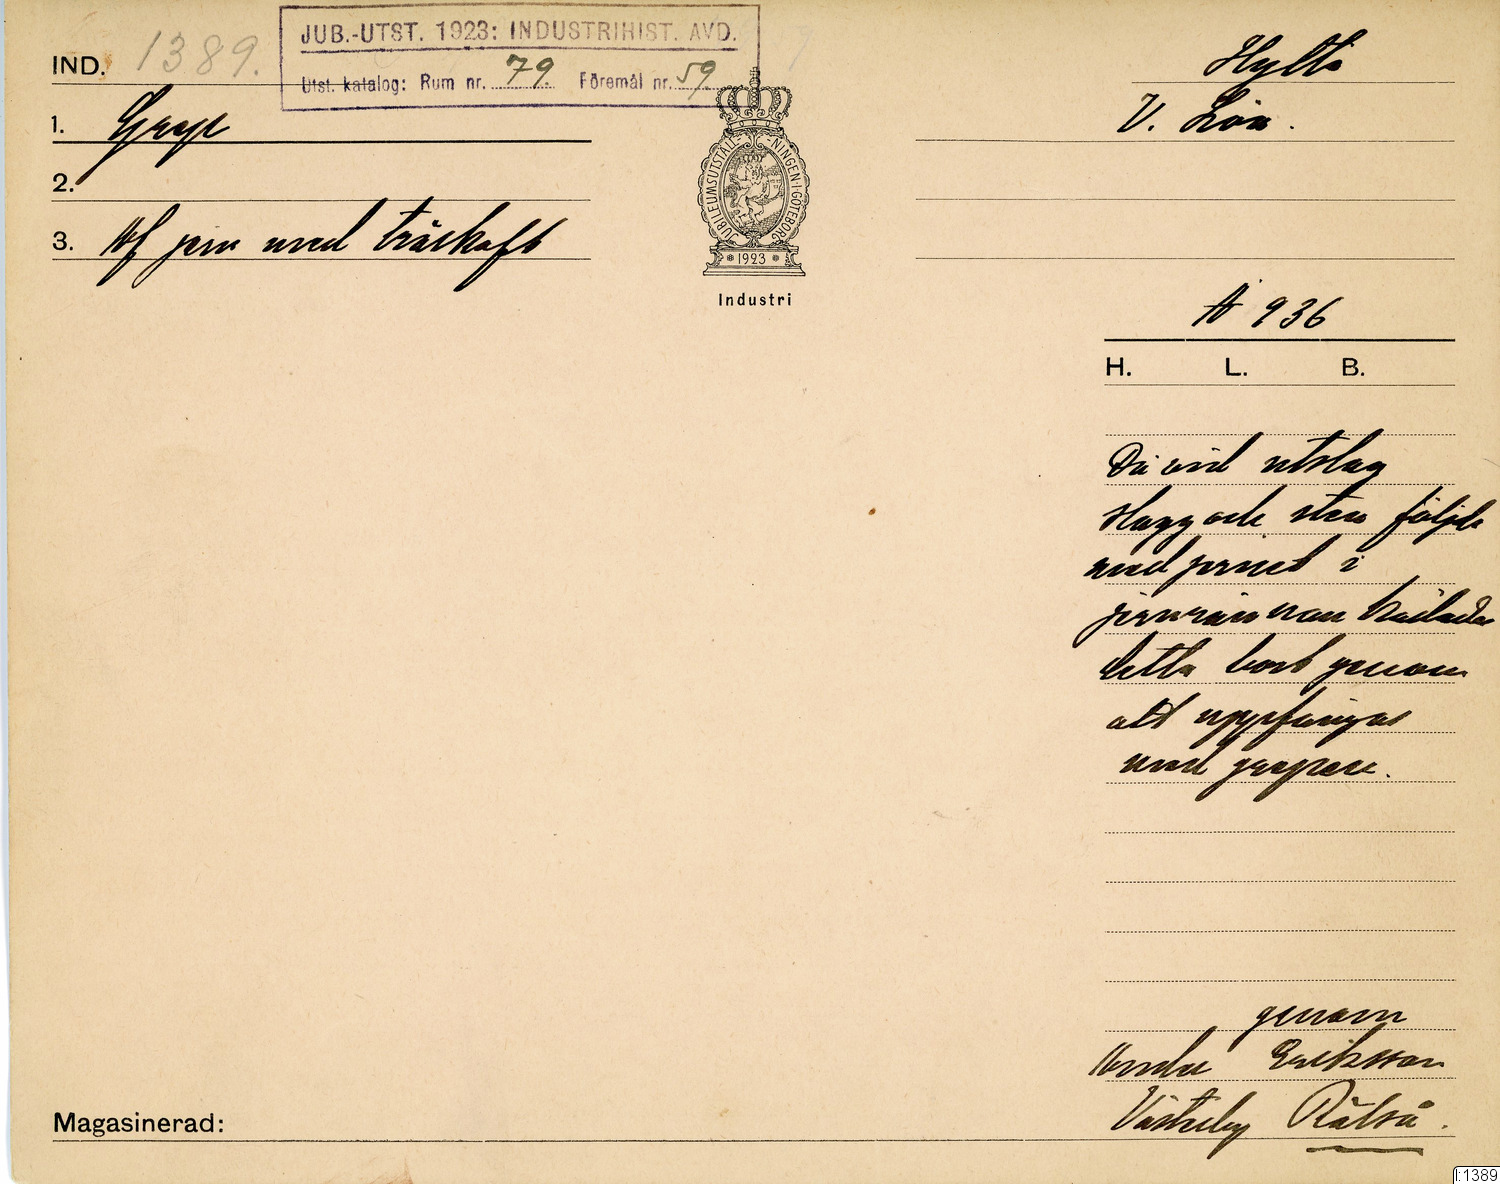 JUB.-UTST. 1923: INDUSTRIHIST. AVD.
Utst. katalog: Rum nr. 79. Föremål nr. 59
IND. 1389.
1. Grep
2.
3. Af jern med träskaft
JUBILEUMSUTSTÄLLNINGEN I GÖTEBORG
1923
Industri
Hytta
V. Löa.
A 936
H. L. B.
Då vid utslag
slagg och sten följde
med jernet i
jernrännan
detta bort genom
att uppfångas
med grepen.
genom
Eriksson
Västerby Rälså.
Magasinerad:
I:1389